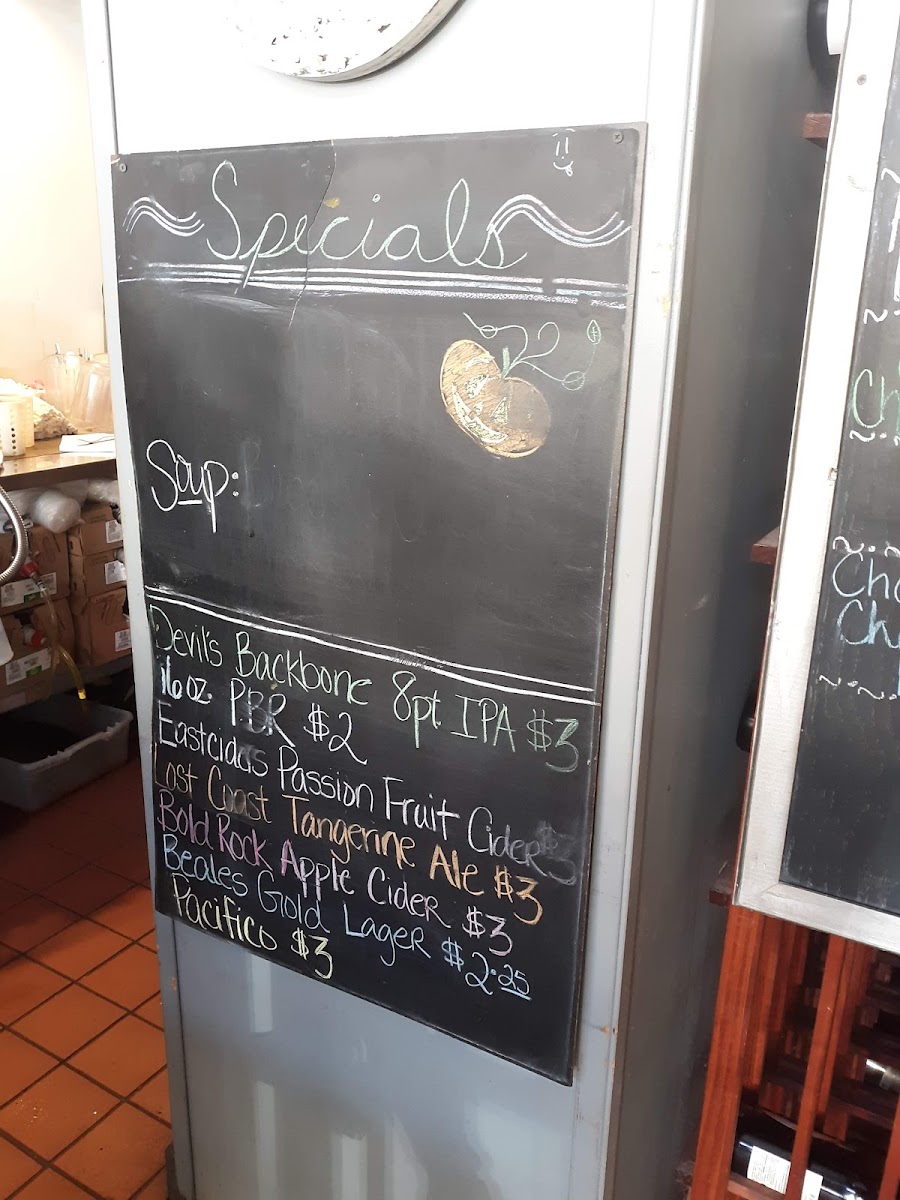 Specials
Soup:
Devil's Backbone 8pt IPA $3
16oz. PBR $2
Eastcidas Passion Fruit Cider $3
Lost Coast Tangerine Ale $3
Bold Rock Apple Cider $3
Beales Gold Lager $2.25
Pacifico $3